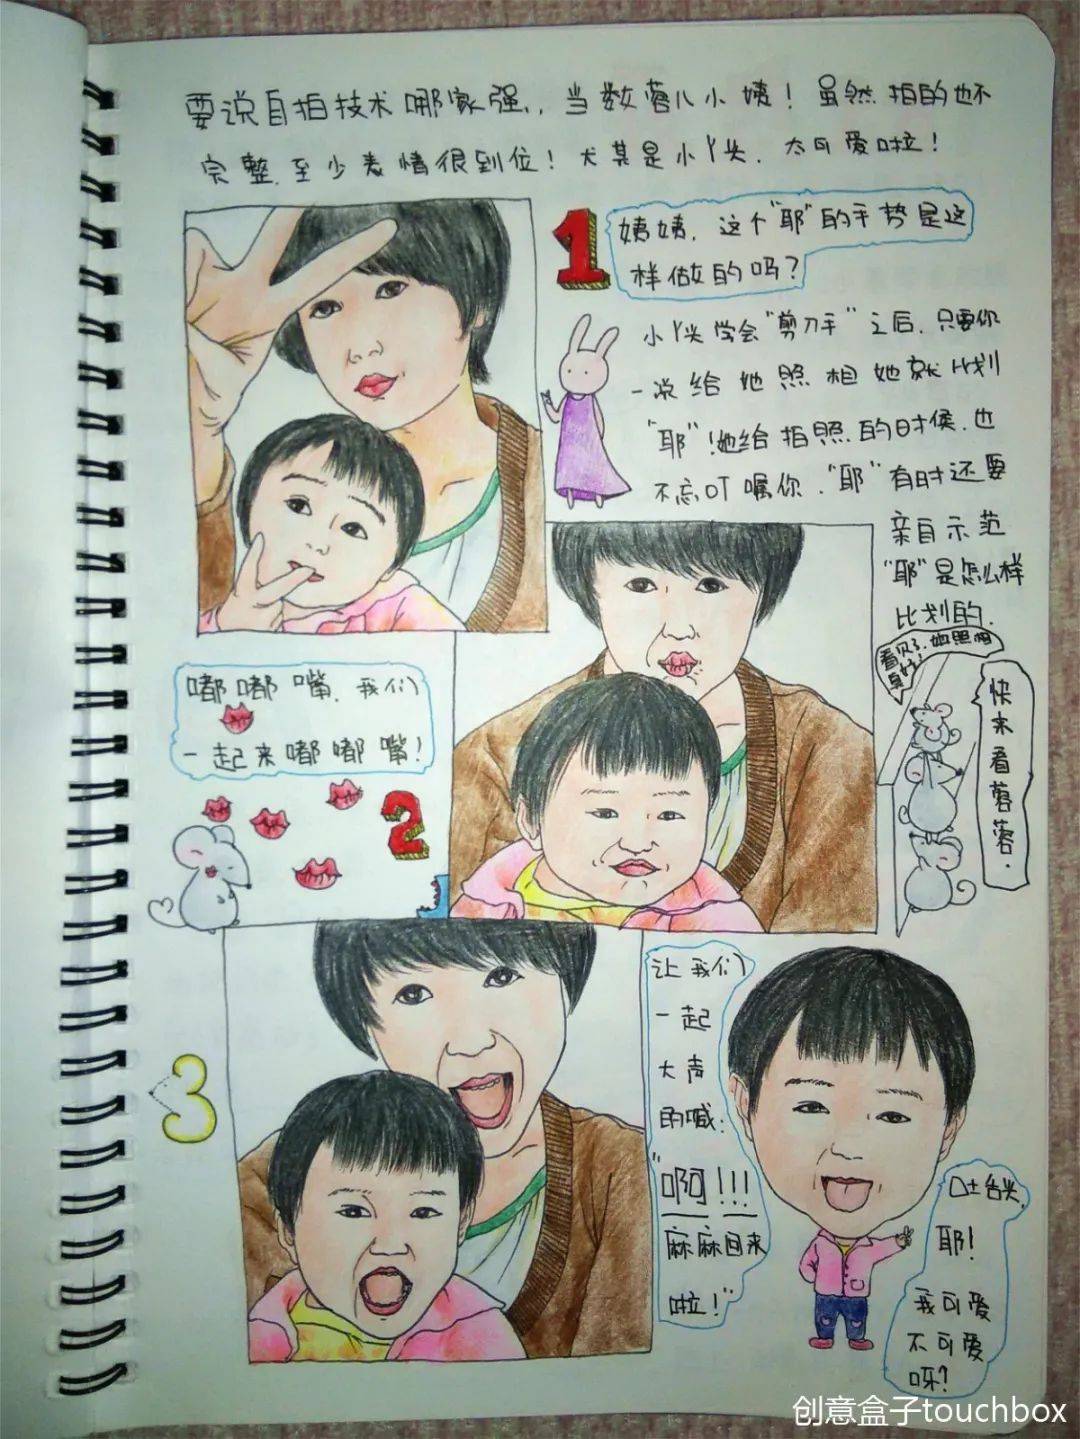 要说自拍技术哪家强,当数蓉儿小姨!虽然拍的也不
完整,至少表情很到位!尤其是小丫头,太可爱啦!
1
姨姨,这个"耶"的手势是这
样做的吗?
小丫头学会"剪刀手"之后,只要你
一说给她照相她就比划
"耶"!她给拍照的时候,也
不忘叮嘱你,"耶"有时还要
亲自示范
"耶"是怎么样
比划的.
看见了,她照相
快来看蓉蓉.
嘟嘟嘴,我们
一起来嘟嘟嘴!
2
3
让我们
一起
大声
的喊:
"啊!!!
麻麻回来
啦!"
吐舌头,
耶!
我可爱
不可爱
呀?
创意盒子touchbox